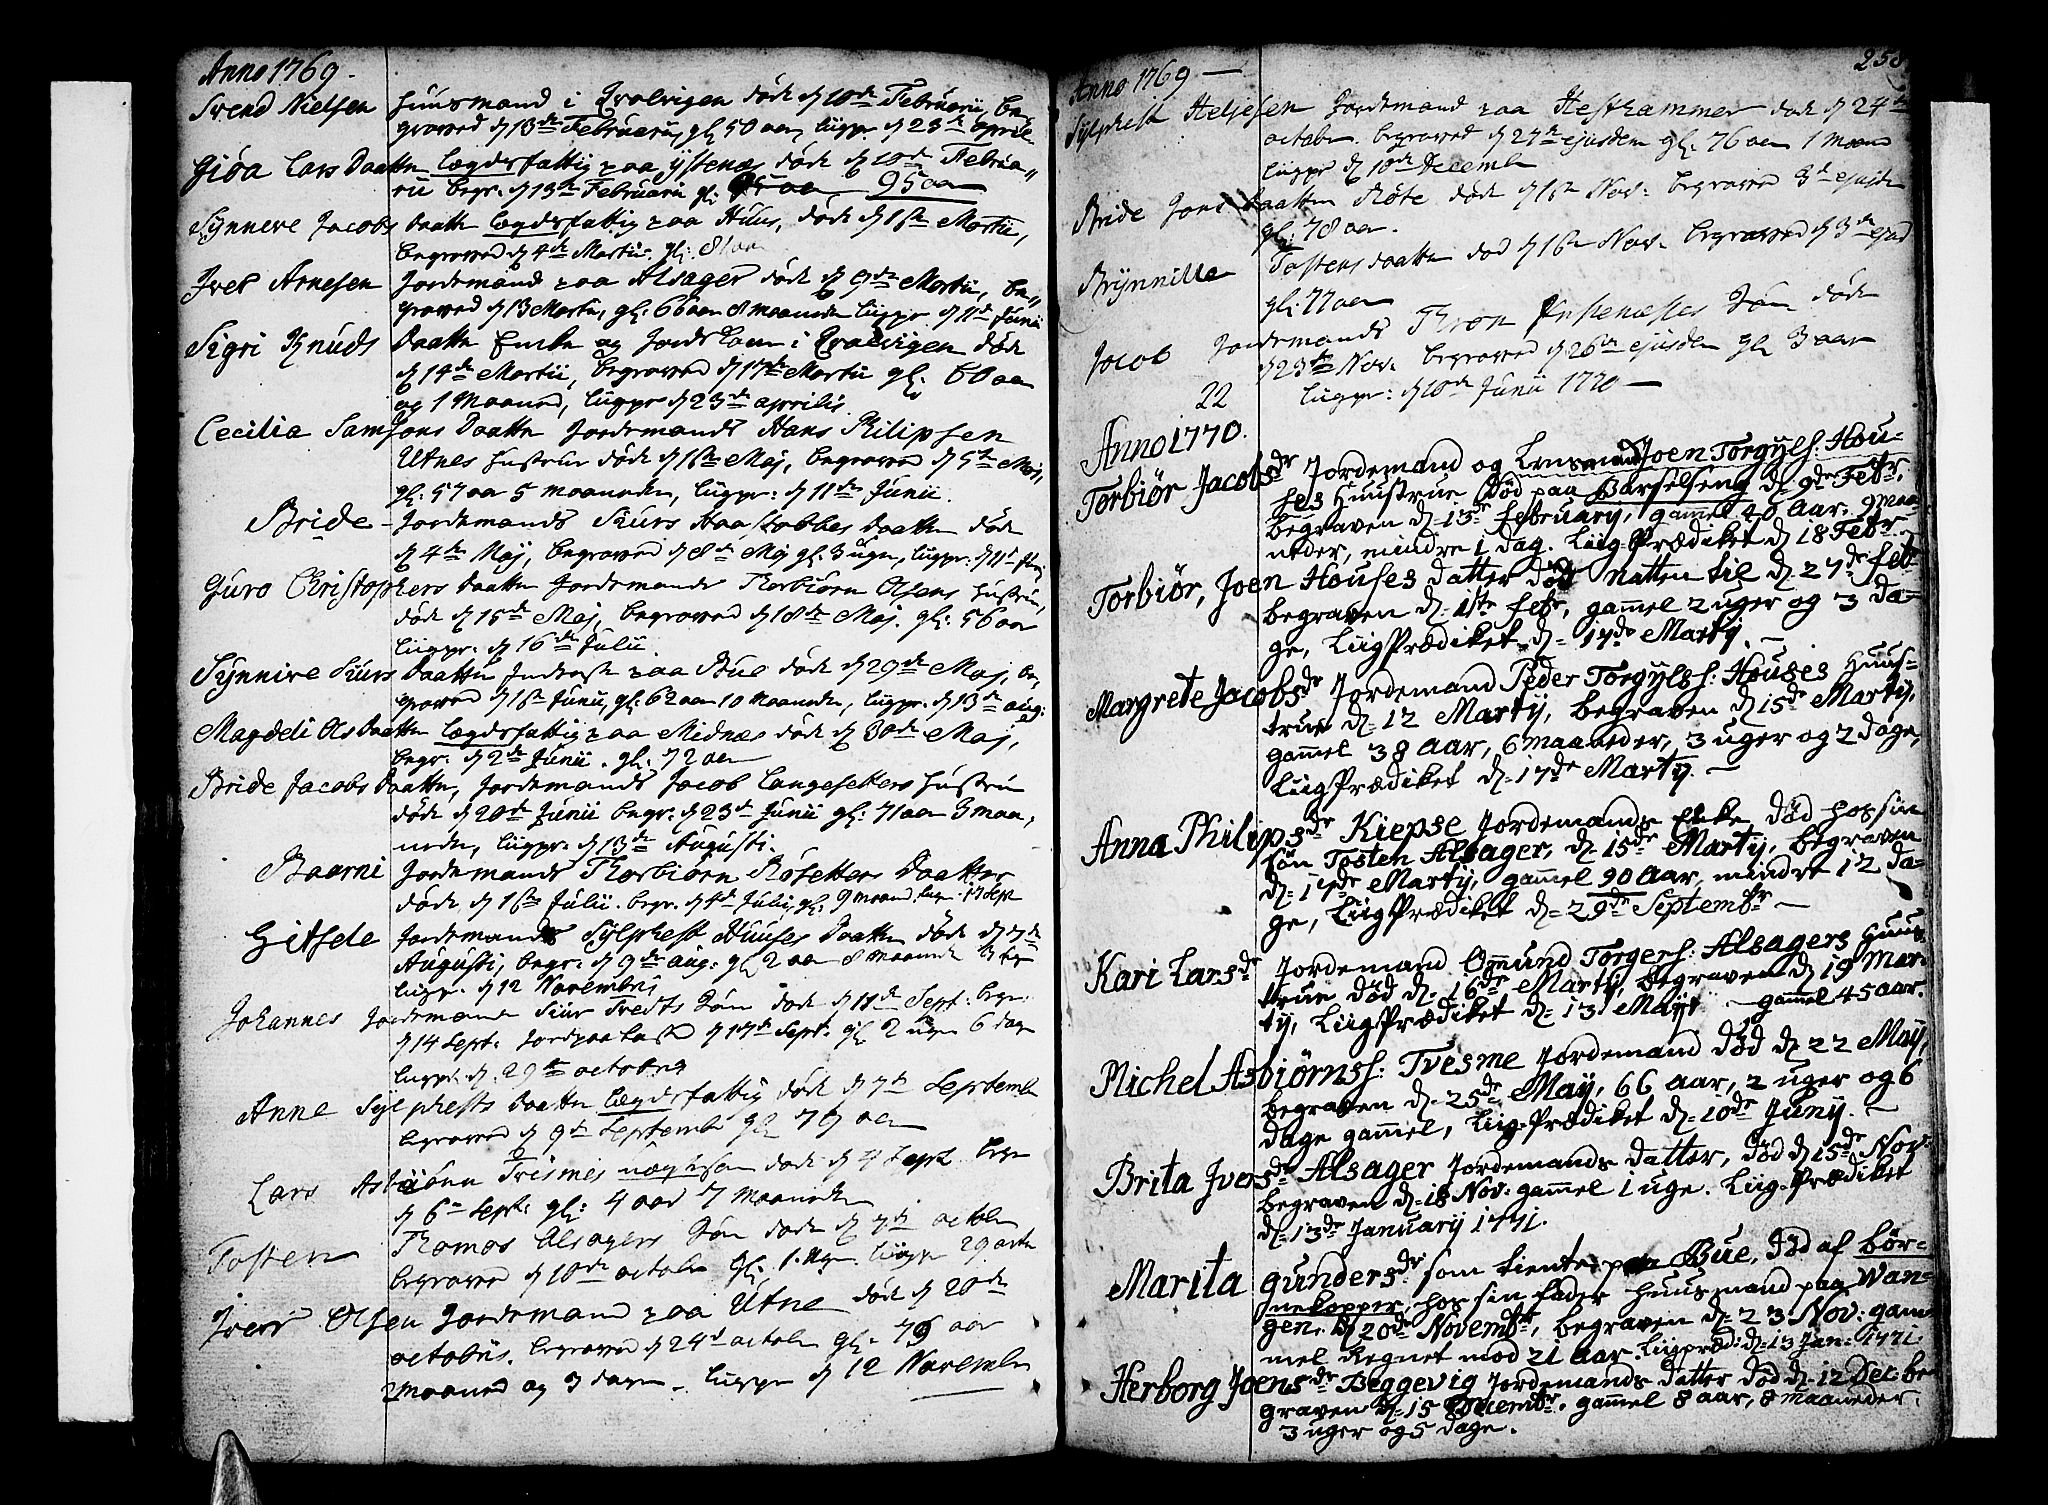 Anno 1769.
Svend Nielsen Huusmand i Qvalvigen døde d 10de Februarii, be-
graved d 13de Februarii, gl: 50 aar, liigpr. d 23de Aprilis
Gióa Lars Daatter lægdsfattig paa Ystenæs døde d 10de Februa-
rii begr. d 13de Februarii gl: 95 aar
Synneve Jacobs Daatter lægdsfattig paa Huus, døde d 1ste Martii,
begraved d 4de Martii. gl: 81 aar
Iver Arnesen Jordemand paa Alsager døde d 9de Martii, be-
graved d 13 Martii, gl: 66 aar 8 maaneder liigpr. d 11de Junii
Sigri Knuds Daatter Encke og i Qvalvigen døde
d 14de Martii, begraved d 17de Martii gl: 60 aar
og 1 Maaned, liigpr d 23de aprilis.
Cecilia Samsons Daatter Jordemands Hans Philipsen
Utnes Hustrue døde d 1ste Maj, begraved d 5te Maj,
gl: 57 aar 5 maaneder, liigpr: d 11de Junii.
Bride - Jordemands Siurs Haastabbes Daatter døde
d 4de Maj, begraved d 8de Maj gl: 3 uger, liigpr: d 11te Junij
Guro Christophers Daatter Jordemands Thorbiørn Olsens Hustrue,
døde d 15de Maj, begraved d 18de Maj. gl: 56 aar
liigpr. d 16de Julii.
Synnive Siurs Daatter paa Bue døde d 29de Maj, be-
graved d 1ste Junii, gl: 62 aar 10 maaneder, liigpr. d 13de aug:
Magdeli Ols Daatter lægdsfattig paa Midnæs døde d 30de Maj,
begr. d 2de Junii. gl: 72 aar
Bride Jacobs Daatter, Jordemands Jacob Langesetters Hustrue
døde d 20de Junii begr. d 23de Junii gl: 71 aar 3 maa-
neder, liigpr. d 13de Augusti.
Baarni Jordemands Thorbiørn Røsetters Daatter
døde d 1ste Julii. begr. d 4de Julii, gl: 9 maaned. liigpr. 17 Sept
Gitsele Jordemands Sylphest Huuses Daatter døde d 7de
Augusti, begr. d 9de aug: gl 2 aar 8 maaneder 3 uger
liigpr. d 12 Novembris
Johannes Jordemands Siur Tvedts Søn døde d 11de Sept: begr:
d 14 Sept: Jordpaakast d 17de Sept: gl 2 uger 6 dage
liigpr. d. 29de octobris
Anne Sylphests Daatter lægdsfattig døde d 7de Septembr
begraved d 9de Septembr gl 79 aar
Lars Asbiørn Tvismes døde d 4 Sept. begr
d 6te Sept: gl: 4 aar 7 maaneder
Tosten Thomas Alsagers Søn døde d 7de octobr
begraved d 10de octobr gl: 1. Uge. liigpr 29 octbr
Iver Olsen Jordemand paa Utne døde d 20de
octobris. begraved d 24de octobr gl: 79 aar
2 maaned og 3 dage - liigpr d 12 Novembr
258.
Anno 1769 —
Sylphest Heljesen Jordemand paa Hesthammer døde d 24de
octobr. begraved d 27de ejusdem gl: 76 aar 1 maaned
liigpr d 10de Decembr
Bride Jons Daatter Røte døde d 1ste Nov: begraved 3de ejusd
gl: 78 aar.
Brynnilla Tostens daatter død d 1ste Nov. begraved d 3de ejusd
gl: 77 aar
Jacob Jordemands Thron Ystenæsses Søn døde
d 23de Nov. begraved d 26de ejusdem gl 3 aar
22 liigpr: d 10de Junii 1770 —
Anno 1770.
Torbiør Jacobsdr Jordemand og Lensmand Joen Torgÿls: Hou-
ses Huustrue død paa Barselseng d: 9de Febr.
begraven d: 13de february, gammel 40 Aar: 9 maa-
neder, mindre 1 dag. Liig-Prædiket d 18 Febr.
Torbiør, Joen Houses datter død natten til d 27de febr
begraven d: 1ste febr, gammel 2 uger og 3 da-
ge, LiigPrædiket d: 17de Martÿ. —
Margrete Jacobsdr Jordemand Peder Torgÿlss: Houses Huus-
true d: 12 Martÿ, begraven d 15de Martÿ,
gammel 38 Aar, 6 maaneder, 3 uger og 2 dage,
LiigPrædiket d: 17de Martÿ. —
Anna Philipsdr Kiepse Jordemands Enke, død hos sin
søn Tosten Alsager, d: 15de Martÿ, begraven
d: 17de Martÿ, gammel 90 Aar, mindre 12 da-
ge, LiigPrædiket d: 29de Septembr —
Kari Larsdr Jordemand Omund Torgers: Alsagers Huus-
true død d: 16de Martÿ, begraven d 19 Mar-
tÿ, LiigPrædiket d: 13 Maÿ — gammel 45 aar.
Michel Asbiørnss: Tvesme Jordemand død d: 22 Maÿ,
begraven d: 25de Maÿ, 66 aar, 2 uger og 6
dage gammel, Liig-Prædiket d: 10de Junÿ. —
Brita Iversdr Alsager Jordemands datter, død d 15de Nov:
begraven d: 18 Nov: gammel 1 uge. Liig-Prædiket
d: 13de Januarÿ 1771.
Marita gundersdr som tiente paa Bue, død af bør-
nekopper, hos sin fader Huusmand paa Wan-
gen. d 20de Novembr, begraven d: 23 Nov: gam-
mel Regnet mod 21 Aar. Liigpræd: d: 13 Jan: 1771.
Herborg Joensdr Beggevig Jordemands datter død d: 12 Dec. be-
graven d: 15 gammel 8 aar, 8 maaneder,
3 uger og 5 dage.